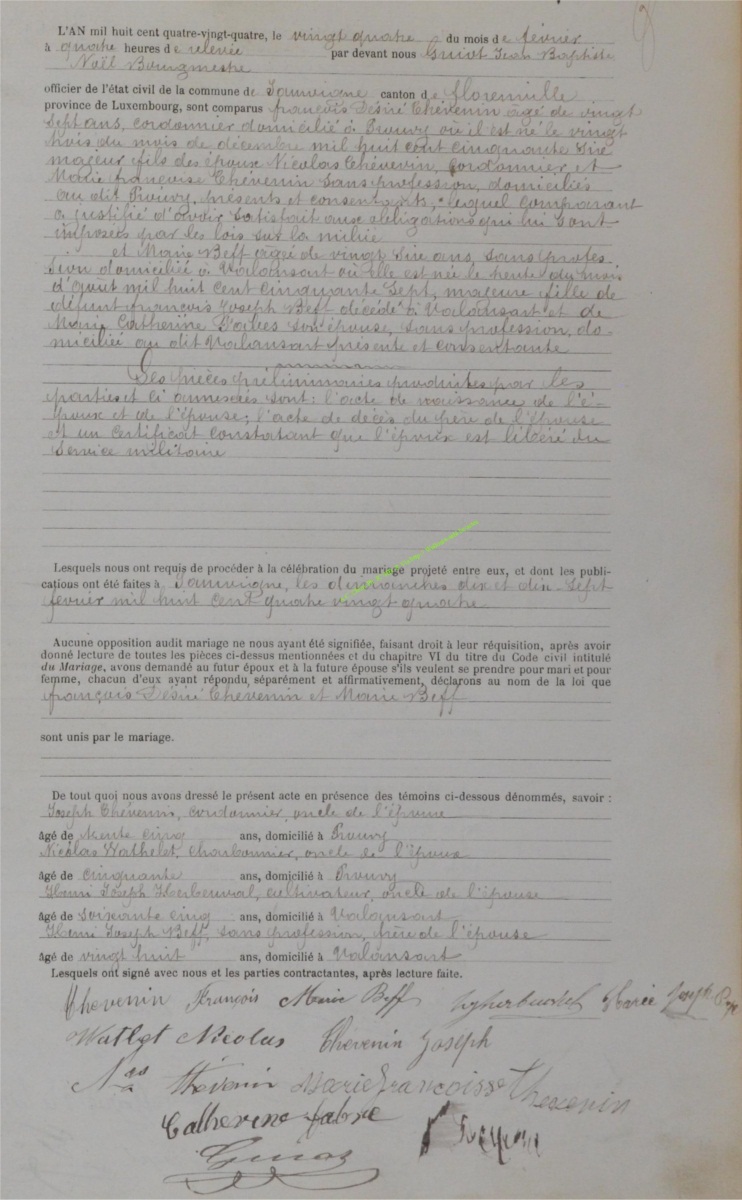 L'AN mil huit cent quatre-vingt-quatre, le vingt quatre du mois de février
à quatre heures de relevée par devant nous Guiot Jean Baptiste
Noël Bourgmestre
officier de l'état civil de la commune de Jamoigne canton de florenville
province de Luxembourg, sont comparus françois Désiré Thévenin âgé de vingt
sept ans, cordonnier domicilié à Prouvy où il est né le vingt
trois du mois de décembre mil huit cent cinquante six
majeur fils des époux Nicolas Thévenin, cordonnier et
Marie françoise Thévenin sans profession, domiciliés
au dit Prouvy, présents et consentants, lequel comparant
a justifié d'avoir satisfait aux obligations qui lui sont
imposées par les lois sur la milice
et Marie Beff âgée de vingt six ans, sans profes
sion domiciliée à Valansart où elle est née le trente du mois
d'aout mil huit cent cinquante sept, majeure fille de
défunt françois Joseph Beff décédé à Valansart et de
Marie Catherine son épouse, sans profession, do-
miciliée au dit Valansart présente et consentante
Les pièces préliminaires produites par les
parties et ci annexées sont: l'acte de naissance de l'é-
poux et de l'épouse; l'acte de décès du père de l'épouse
et un certificat constatant que l'époux est libéré du
service militaire
Lesquels nous ont requis de procéder à la célébration du mariage projeté entre eux, et dont les publi-
cations ont été faites à Jamoigne, les dimanches dix et dix-sept
février mil huit cent quatre vingt quatre
Aucune opposition audit mariage ne nous ayant été signifiée, faisant droit à leur réquisition, après avoir
donné lecture de toutes les pièces ci-dessus mentionnées et du chapitre VI du titre du Code civil intitulé
du Mariage, avons demandé au futur époux et à la future épouse s'ils veulent se prendre pour mari et pour
femme, chacun d'eux ayant répondu séparément et affirmativement, déclarons au nom de la loi que
françois Désiré Thévenin et Marie Beff
sont unis par le mariage.
De tout quoi nous avons dressé le présent acte en présence des témoins ci-dessous dénommés, savoir :
Joseph Thévenin, cordonnier, oncle de l'époux
âgé de trente cinq ans, domicilié à Prouvy
Nicolas Wathelet, charbonnier, oncle de l'époux
âgé de cinquante ans, domicilié à Prouvy
Henri Joseph Herbeuval, cultivateur, oncle de l'épouse
âgé de soixante cinq ans, domicilié à Valansart
Henri Joseph Beff, sans profession, frère de l'épouse
âgé de vingt huit ans, domicilié à Valansart
Lesquels ont signé avec nous et les parties contractantes, après lecture faite.
Thevenin François Marie Beff Joseph
Watlet Nicolas Thevenin Joseph
Nas Thévenin Marie francoisse Thevenin
Catherine